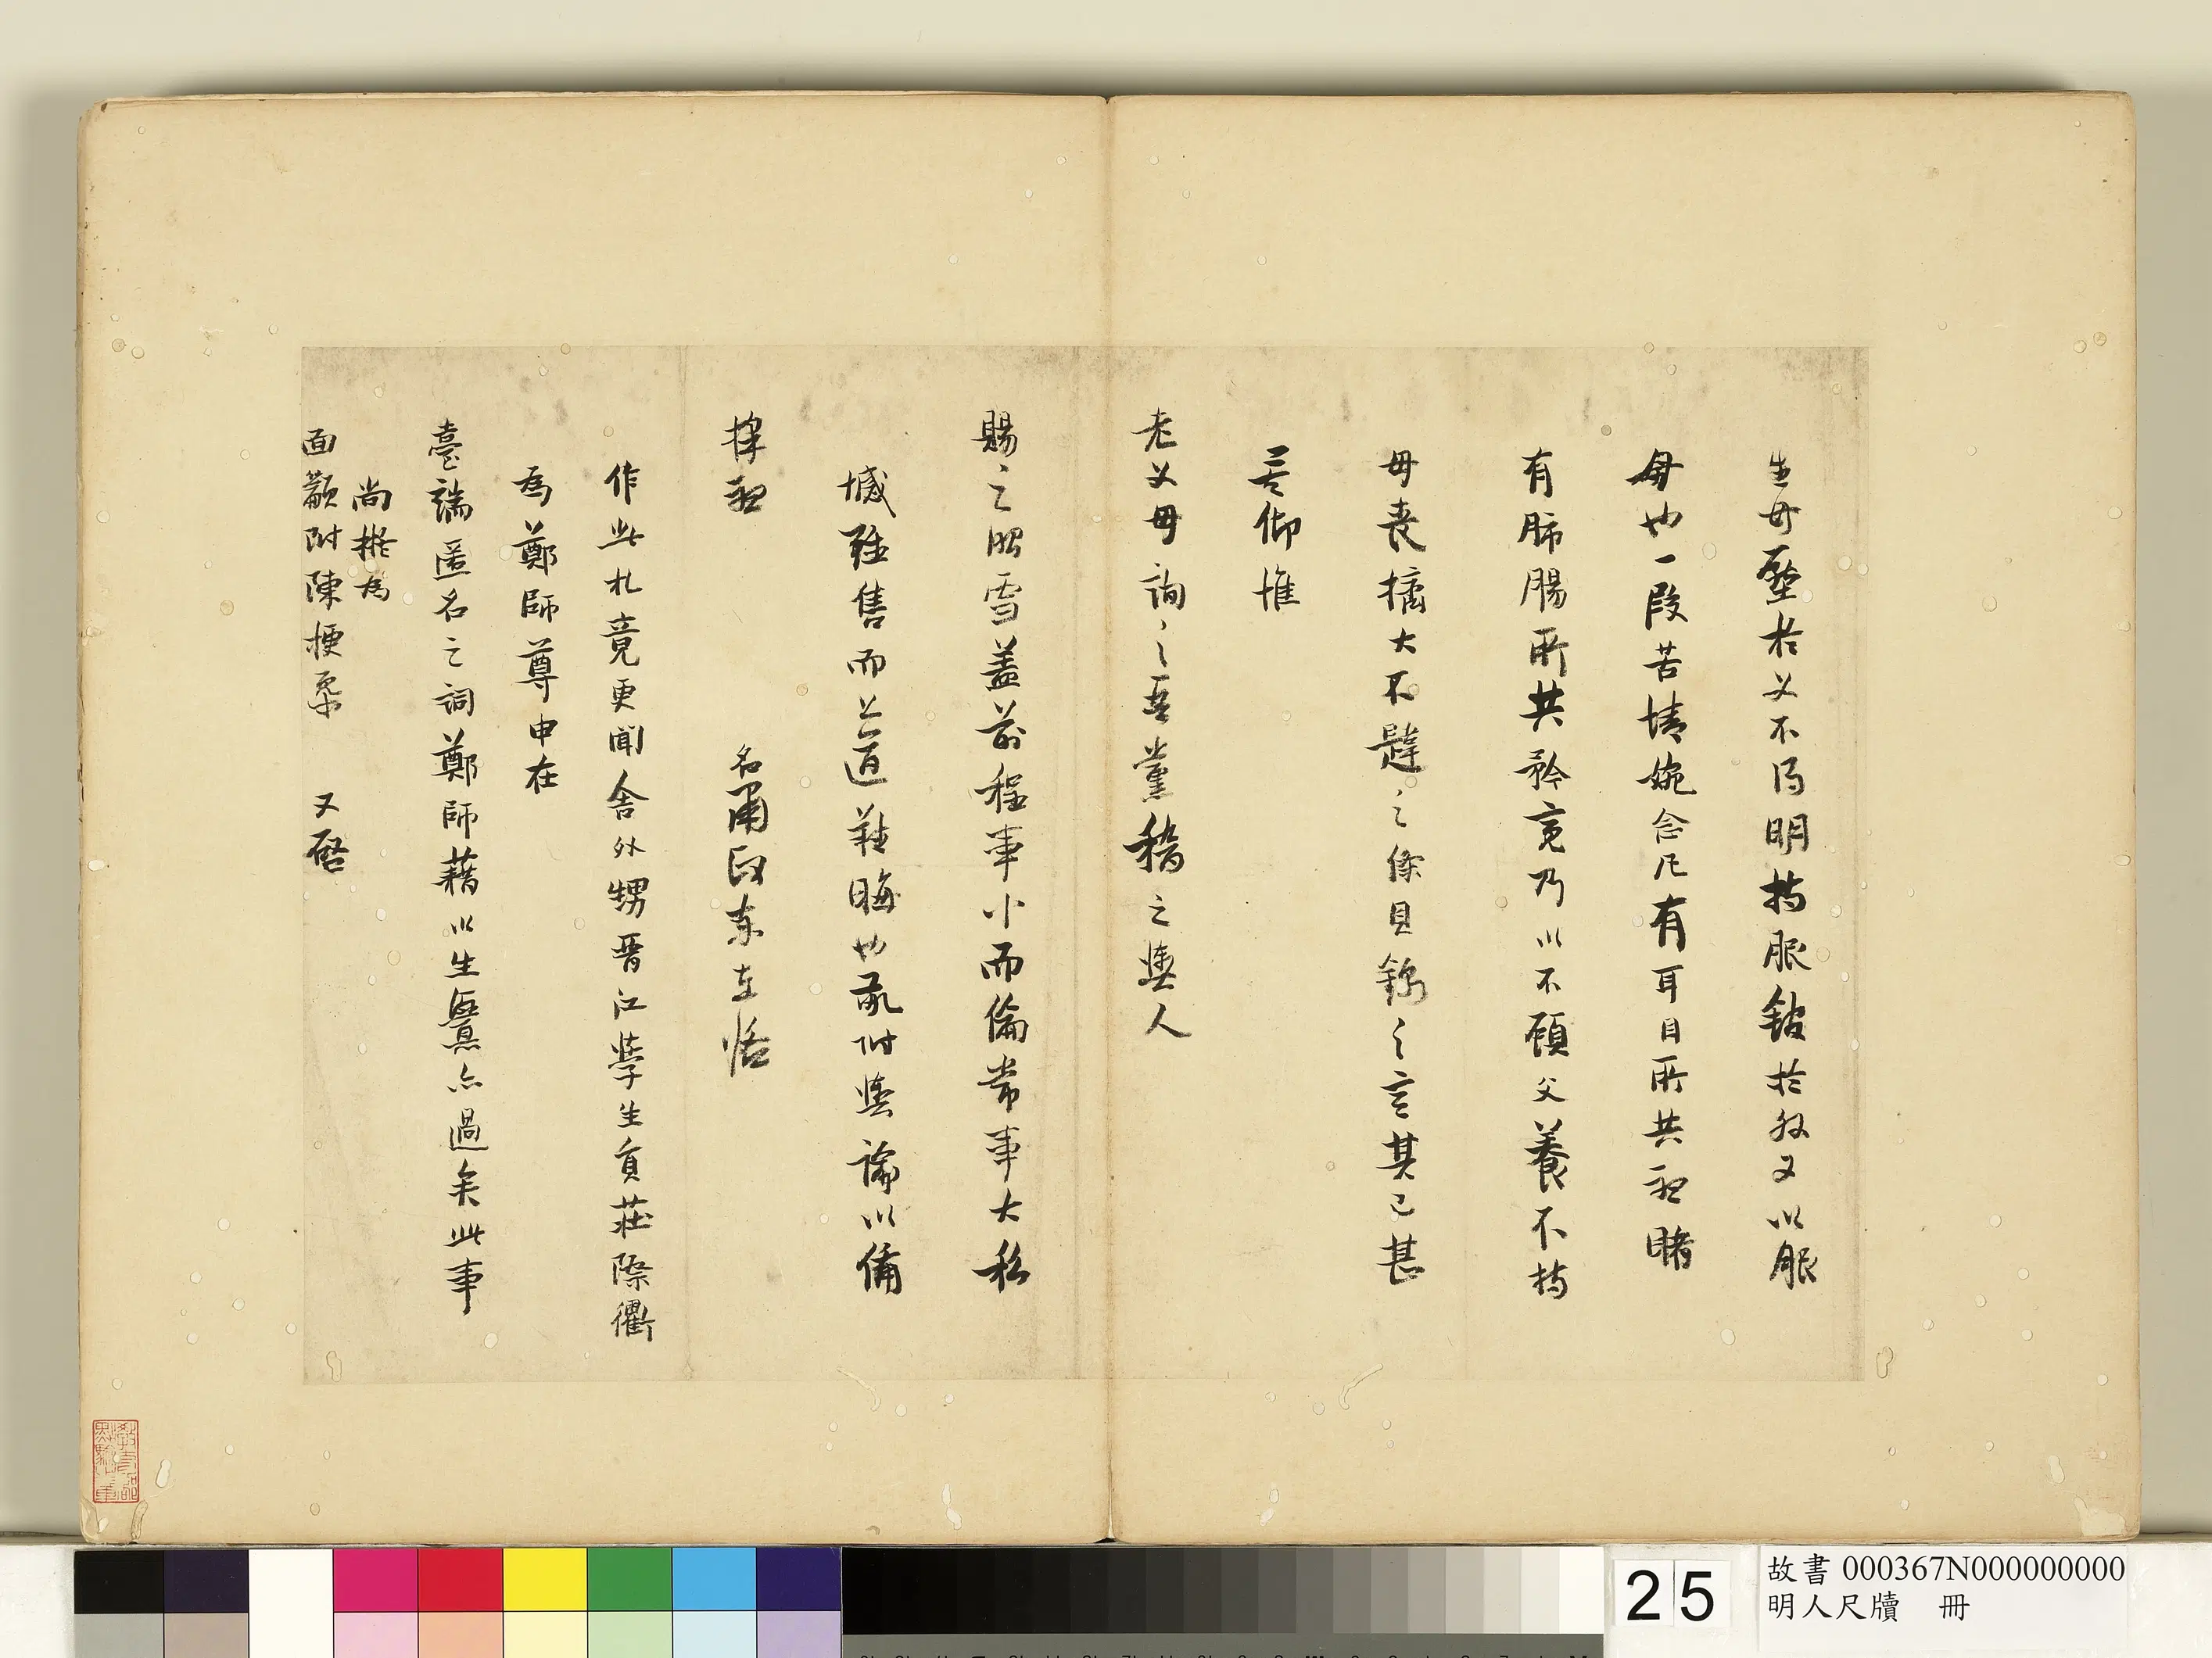 生母壓於父不得明持服鈹於叔又以服
母也一段苦情婉念凡有耳目所共知睹
有肺腸所共矜竟乃以不顧父養不持
母喪摭大不韙之條貝錦之言其已甚
乎仰惟
老父母詢之吾黨稽之輿人
賜之昭雪蓋前程事小而倫常事大私
憾雖售而公道難晦也敢附輿論以備
擇知
名甫正東左悟
作此札竟更聞舍外甥晉江學生員莊際衢
為鄭師尊申在
臺端匿名之詞鄭師藉以生釁亦過矣此事
尚擬為
面籲附陳梗槩 又啓
25
故書 000367N000000000
明人尺牘 冊